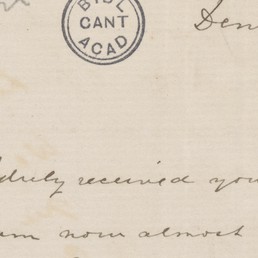 BIBL
CANT
ACAD
duly received you
am now almost